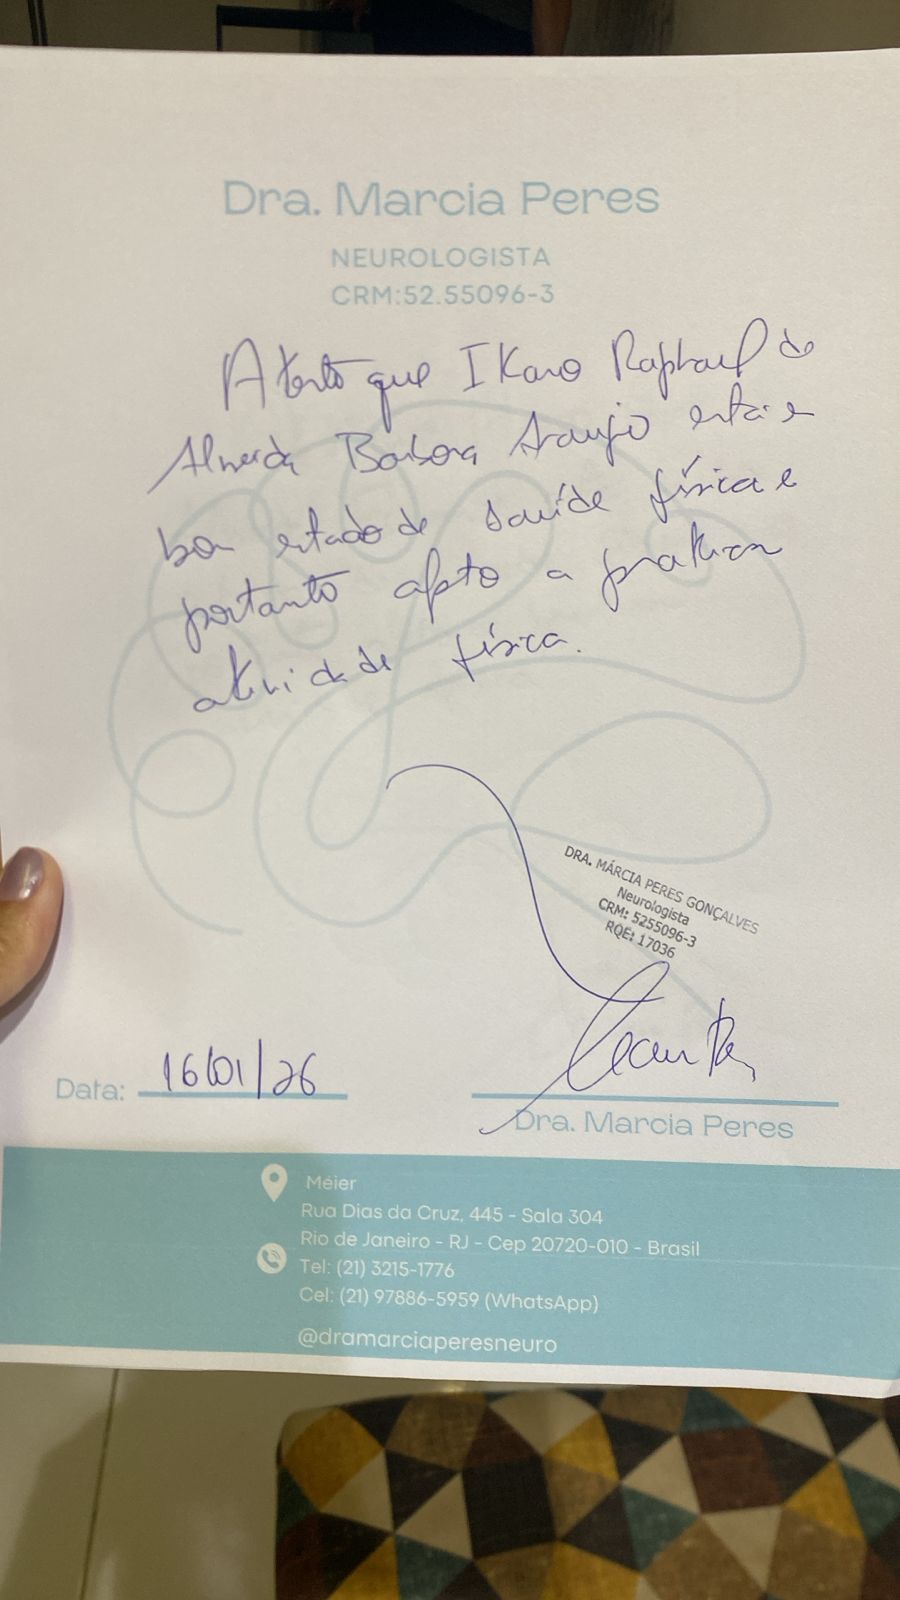 Dra. Marcia Peres
NEUROLOGISTA
CRM:52.55096-3
Atesto que Ikaro Raphael de
Almeida Barbosa Araujo está e
bom estado de saúde física e
portanto apto a praticar
atividade física.
DRA. MÁRCIA PERES GONÇALVES
Neurologista
CRM: 5255096-3
RQE: 17036
Data: 16/01/26
Dra. Marcia Peres
Méier
Rua Dias da Cruz, 445 - Sala 304
Rio de Janeiro - RJ - Cep 20720-010 - Brasil
Tel: (21) 3215-1776
Cel: (21) 97886-5959 (WhatsApp)
@dramarciaperesneuro